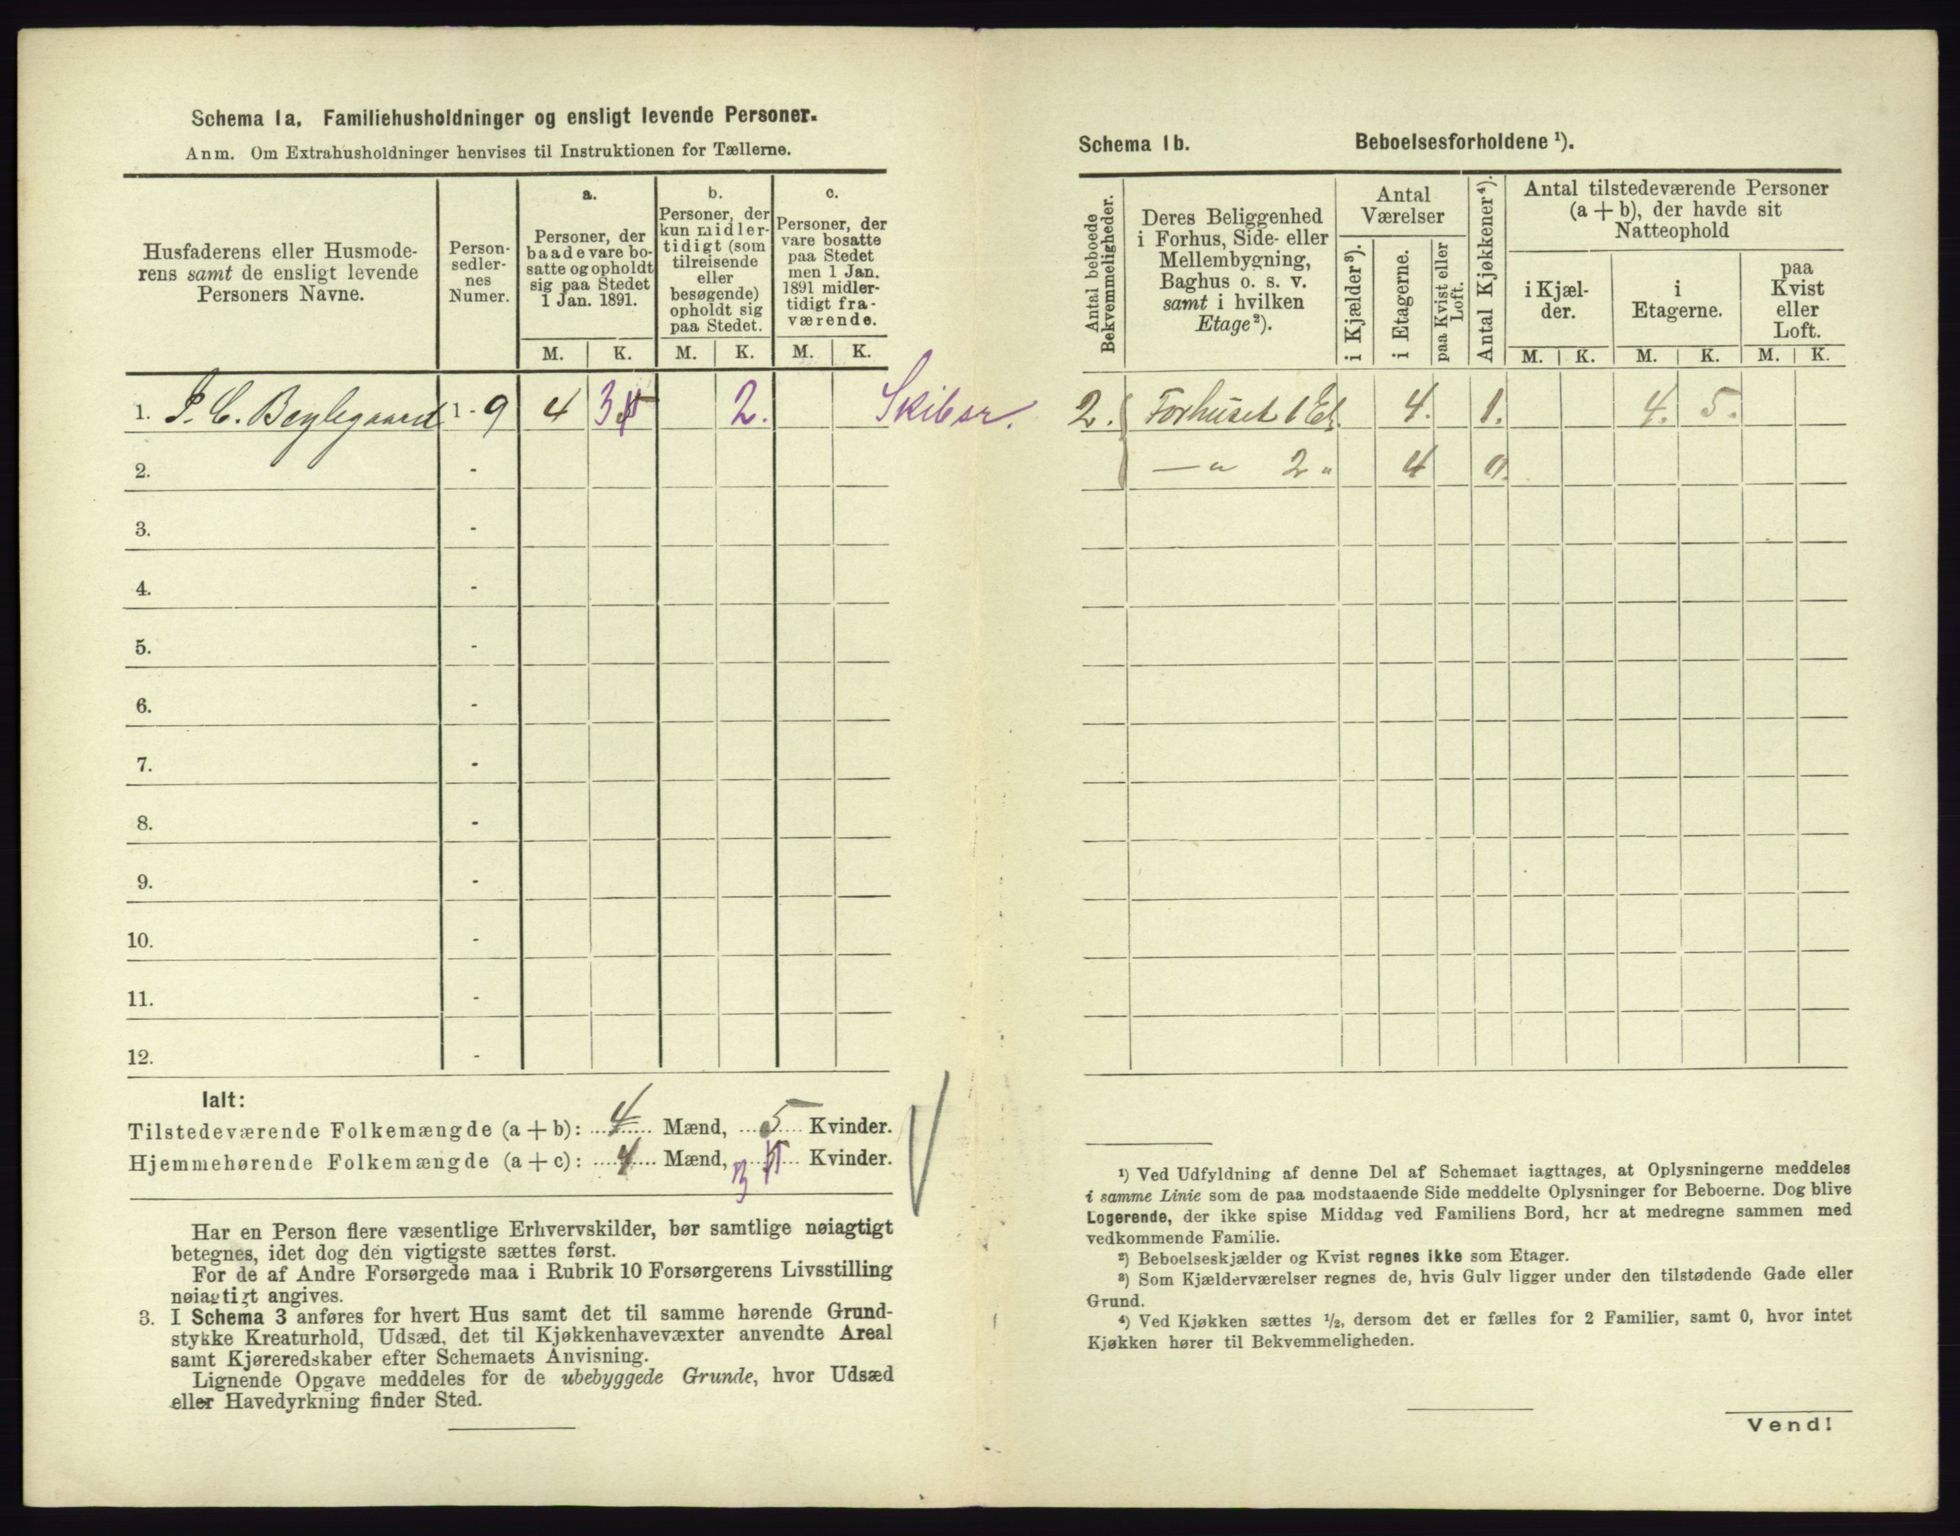 Schema 1a. Familiehusholdninger og ensligt levende Personer.
Anm. Om Extrahusholdninger henvises til Instruktionen for Tællerne.
Husfaderens eller Husmode-
rens samt de ensligt levende
Personers Navne.
Person-
sedler-
nes
Numer.
a.
Personer, der
baade vare bo-
satte og opholdt
sig paa Stedet
1 Jan. 1891.
b.
Personer, der
kun midler-
tidigt (som
tilreisende
eller
besøgende)
opholdt sig
paa Stedet.
c.
Personer, der
vare bosatte
paa Stedet
men 1 Jan.
1891 midler-
tidigt fra-
værende.
M. K. M. K. M. K.
1. P. C. Beylegaard 1 - 9 4 3 5 2. Skibsr.
2. -
3. -
4. -
5. -
6. -
7. -
8. -
9. -
10. -
11. -
12. -
Ialt:
Tilstedeværende Folkemængde (a + b): 4 Mænd, 5 Kvinder.
Hjemmehørende Folkemængde (a + c): 4 Mænd, 3 5 Kvinder.
Har en Person flere væsentlige Erhvervskilder, bør samtlige nøiagtigt
betegnes, idet dog den vigtigste sættes først.
For de af Andre Forsørgede maa i Rubrik 10 Forsørgerens Livsstilling
nøiagtigt angives.
3. I Schema 3 anføres for hvert Hus samt det til samme hørende Grund-
stykke Kreaturhold, Udsæd, det til Kjøkkenhavevæxter anvendte Areal
samt Kjøreredskaber efter Schemaets Anvisning.
Lignende Opgave meddeles for de ubebyggede Grunde, hvor Udsæd
eller Havedyrkning finder Sted.
Schema 1b. Beboelsesforholdene ¹).
Antal beboede
Bekvemmeligheder.
Deres Beliggenhed
i Forhus, Side- eller
Mellembygning,
Baghus o. s. v.
samt i hvilken
Etage²).
Antal
Værelser
i Kjælder³).
i Etagerne.
paa Kvist eller
Loft.
Antal Kjøkkener⁴).
Antal tilstedeværende Personer
(a + b), der havde sit
Natteophold
i Kjæl-
der.
i
Etagerne.
paa
Kvist
eller
Loft.
M. K. M. K. M. K.
2. Forhuset 1 Et. 4. 1. 4. 5.
— " 2 " 4 0.
¹) Ved Udfyldning af denne Del af Schemaet iagttages, at Oplysningerne meddeles
i samme Linie som de paa modstaaende Side meddelte Oplysninger for Beboerne. Dog blive
Logerende, der ikke spise Middag ved Familiens Bord, her at medregne sammen med
vedkommende Familie.
²) Beboelseskjælder og Kvist regnes ikke som Etager.
³) Som Kjælderværelser regnes de, hvis Gulv ligger under den tilstødende Gade eller
Grund.
⁴) Ved Kjøkken sættes ½, dersom det er fælles for 2 Familier, samt 0, hvor intet
Kjøkken hører til Bekvemmeligheden.
Vend!